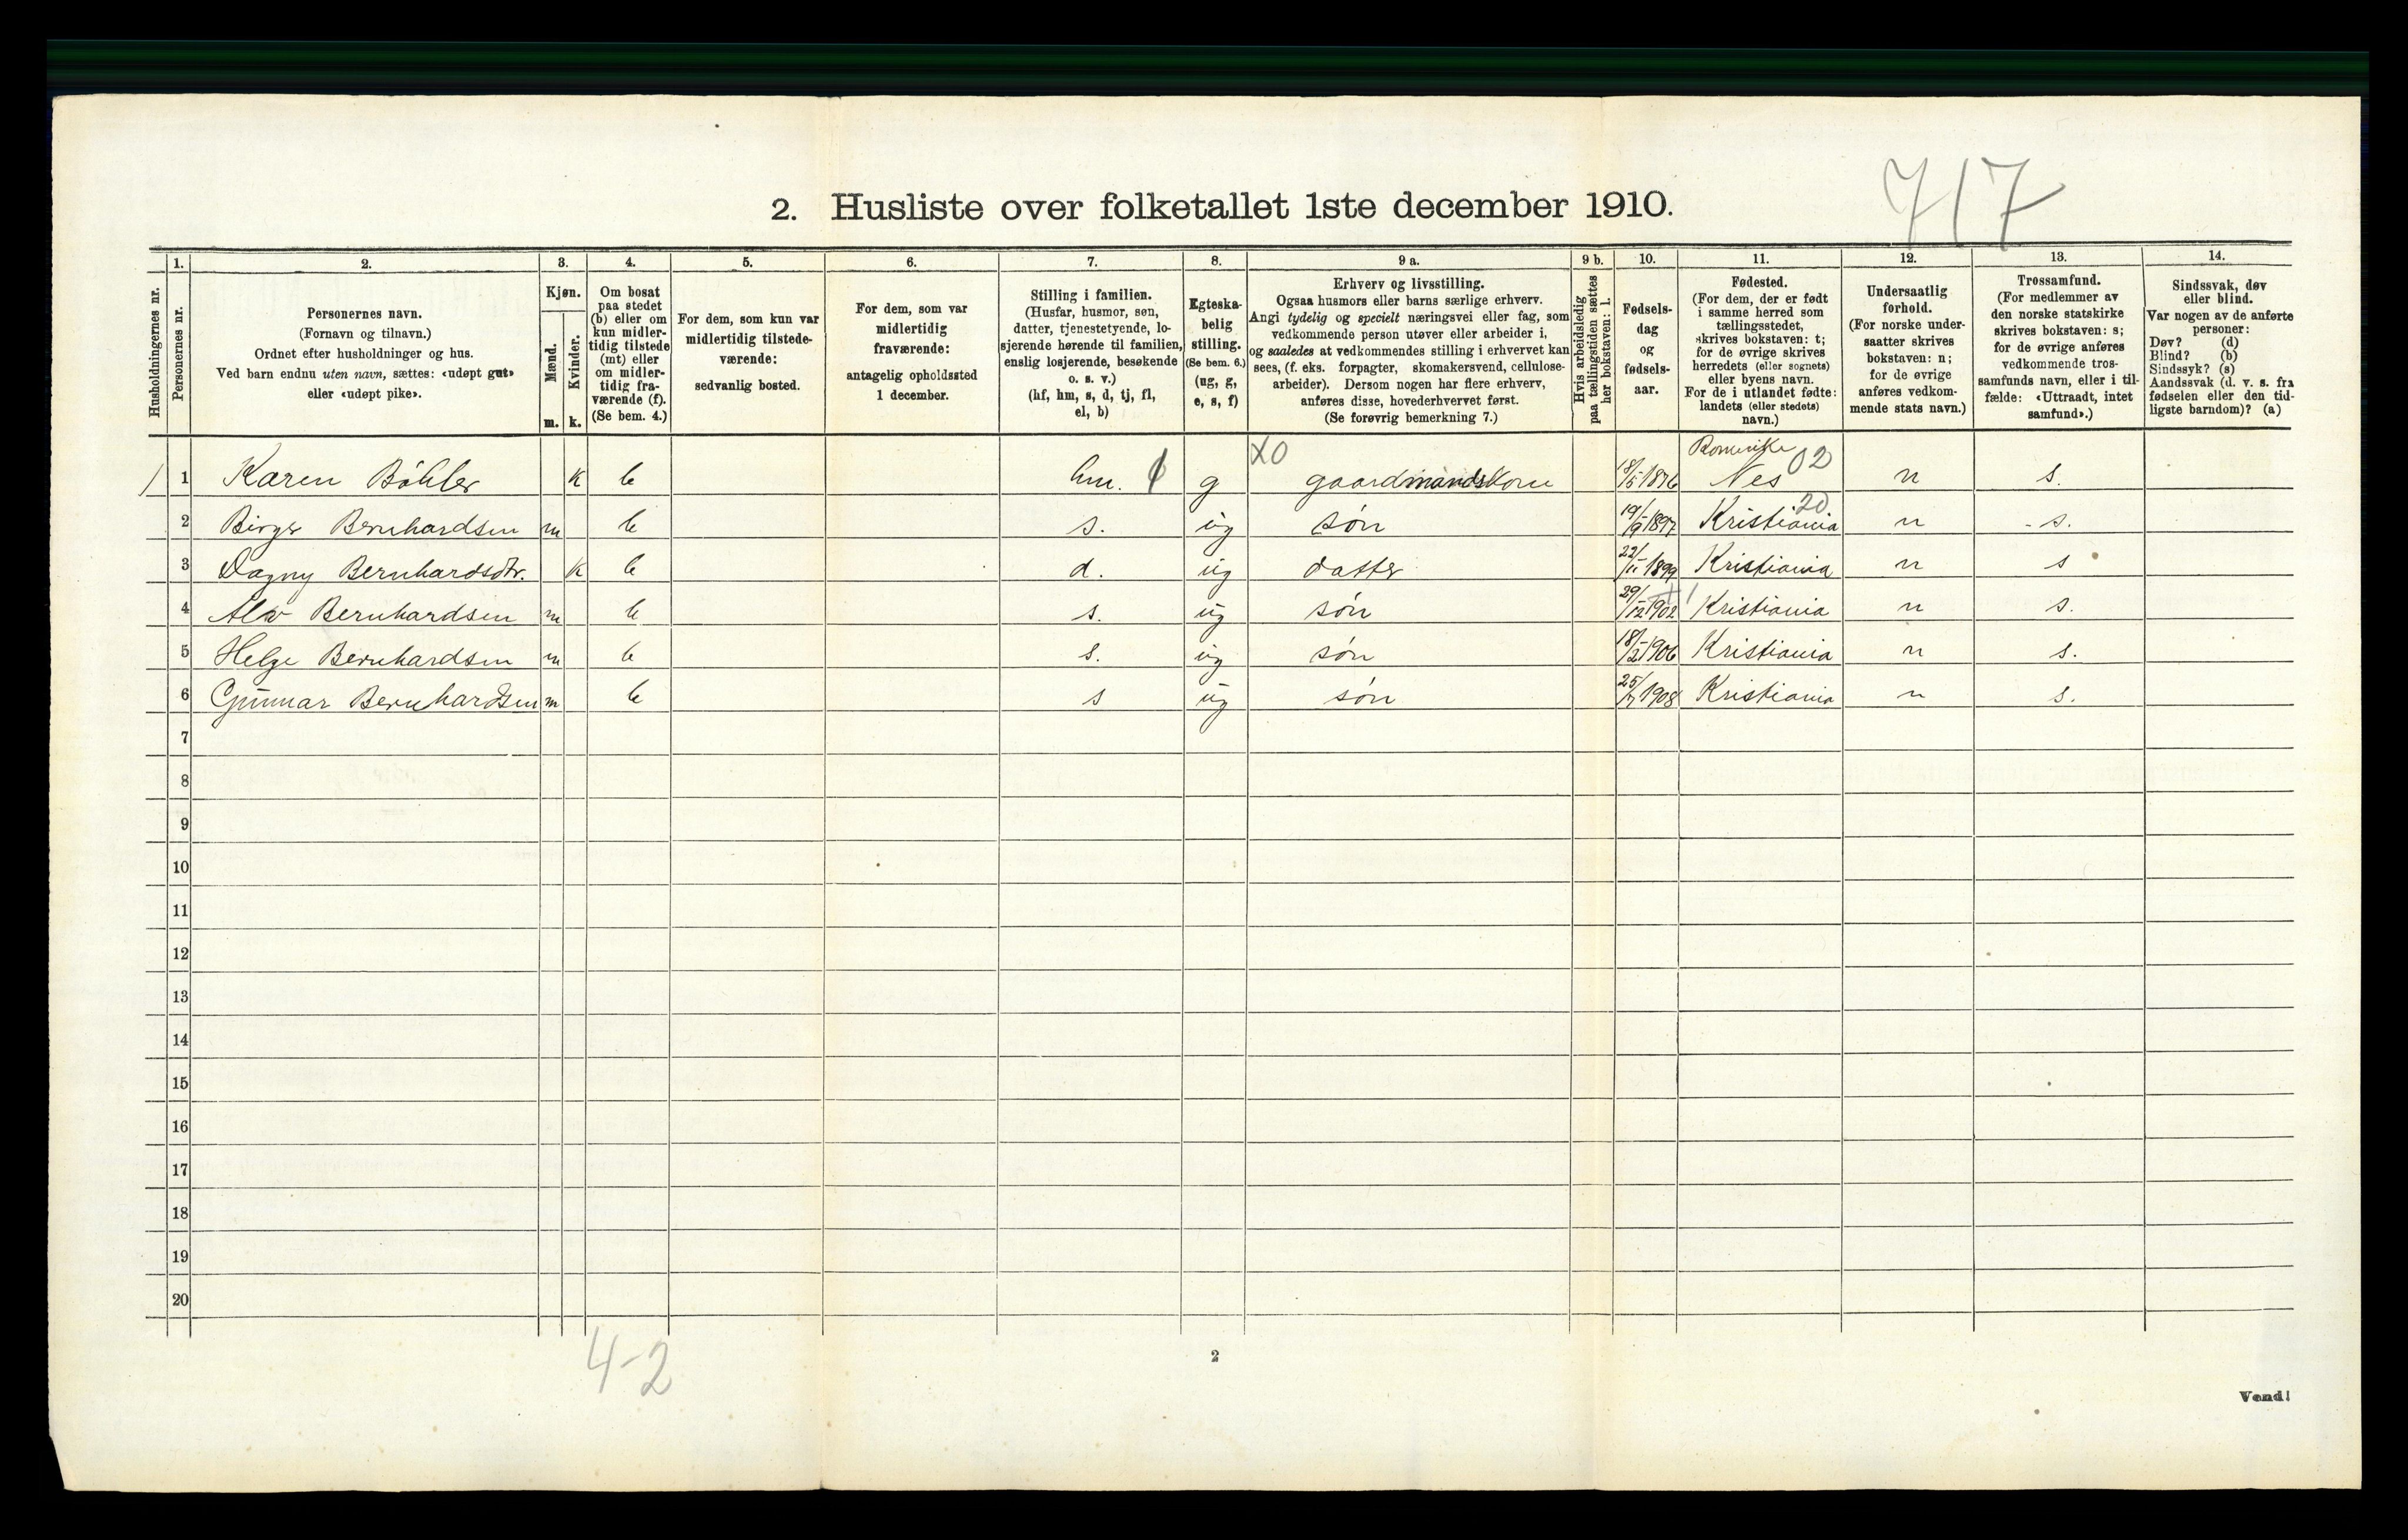 717
2. Husliste over folketallet 1ste december 1910.
Husholdningernes nr.
1.
Personernes nr.
2.
Personernes navn.
(Fornavn og tilnavn.)
Ordnet efter husholdninger og hus.
Ved barn endnu uten navn, sættes: «udøpt gut»
eller «udøpt pike».
3.
Kjøn.
Mænd.
Kvinder.
m. k.
4.
Om bosat
paa stedet
(b) eller om
kun midler-
tidig tilstede
(mt) eller
om midler-
tidig fra-
værende (f).
(Se bem. 4.)
5.
For dem, som kun var
midlertidig tilstede-
værende:
sedvanlig bosted.
6.
For dem, som var
midlertidig
fraværende:
antagelig opholdssted
1 december.
7.
Stilling i familien.
(Husfar, husmor, søn,
datter, tjenestetyende, lo-
sjerende hørende til familien,
enslig losjerende, besøkende
o. s. v.)
(hf, hm, s, d, tj, fl,
el, b)
8.
Egteska-
belig
stilling.
(Se bem. 6.)
(ug, g,
e, s, f)
9 a.
Erhverv og livsstilling.
Ogsaa husmors eller barns særlige erhverv.
Angi tydelig og specielt næringsvei eller fag, som
vedkommende person utøver eller arbeider i,
og saaledes at vedkommendes stilling i erhvervet kan
sees, (f. eks. forpagter, skomakersvend, cellulose-
arbeider). Dersom nogen har flere erhverv,
anføres disse, hovederhvervet først.
(Se forøvrig bemerkning 7.)
9 b.
Hvis arbeidsledig
paa tællingstiden sættes
her bokstaven: l.
10.
Fødsels-
dag
og
fødsels-
aar.
11.
Fødested.
(For dem, der er født
i samme herred som
tællingsstedet,
skrives bokstaven: t;
for de øvrige skrives
herredets (eller sognets)
eller byens navn.
For de i utlandet fødte:
landets (eller stedets)
navn.)
12.
Undersaatlig
forhold.
(For norske under-
saatter skrives
bokstaven: n;
for de øvrige
anføres vedkom-
mende stats navn.)
13.
Trossamfund.
(For medlemmer av
den norske statskirke
skrives bokstaven: s;
for de øvrige anføres
vedkommende tros-
samfunds navn, eller i til-
fælde: «Uttraadt, intet
samfund».)
14.
Sindssvak, døv
eller blind.
Var nogen av de anførte
personer:
Døv? (d)
Blind? (b)
Sindssyk? (s)
Aandssvak (d. v. s. fra
fødselen eller den tid-
ligste barndom)? (a)
X0 Romerike 02
1 Karen Böhler k b hm. g gaardmandskone 18/5-1876 Nes n s.
20
2 Birger Bernhardsen m b s. ug søn 19/9-1897 Kristiania n s.
3 Dagny Bernhardsdtr. k b d. ug datter 22/11-1899 Kristiania n s
4 Alv Bernhardsen m b s. ug søn 29/12-1902 Kristiania n s.
5 Helge Bernhardsen m b s. ug søn 18/2-1906 Kristiania n s.
6 Gunnar Bernhardsen m b s ug søn 25/7 1908 Kristiania n s.
7
8
9
10
11
12
13
14
15
16
17
18
19
20
4-2
2
Vend!